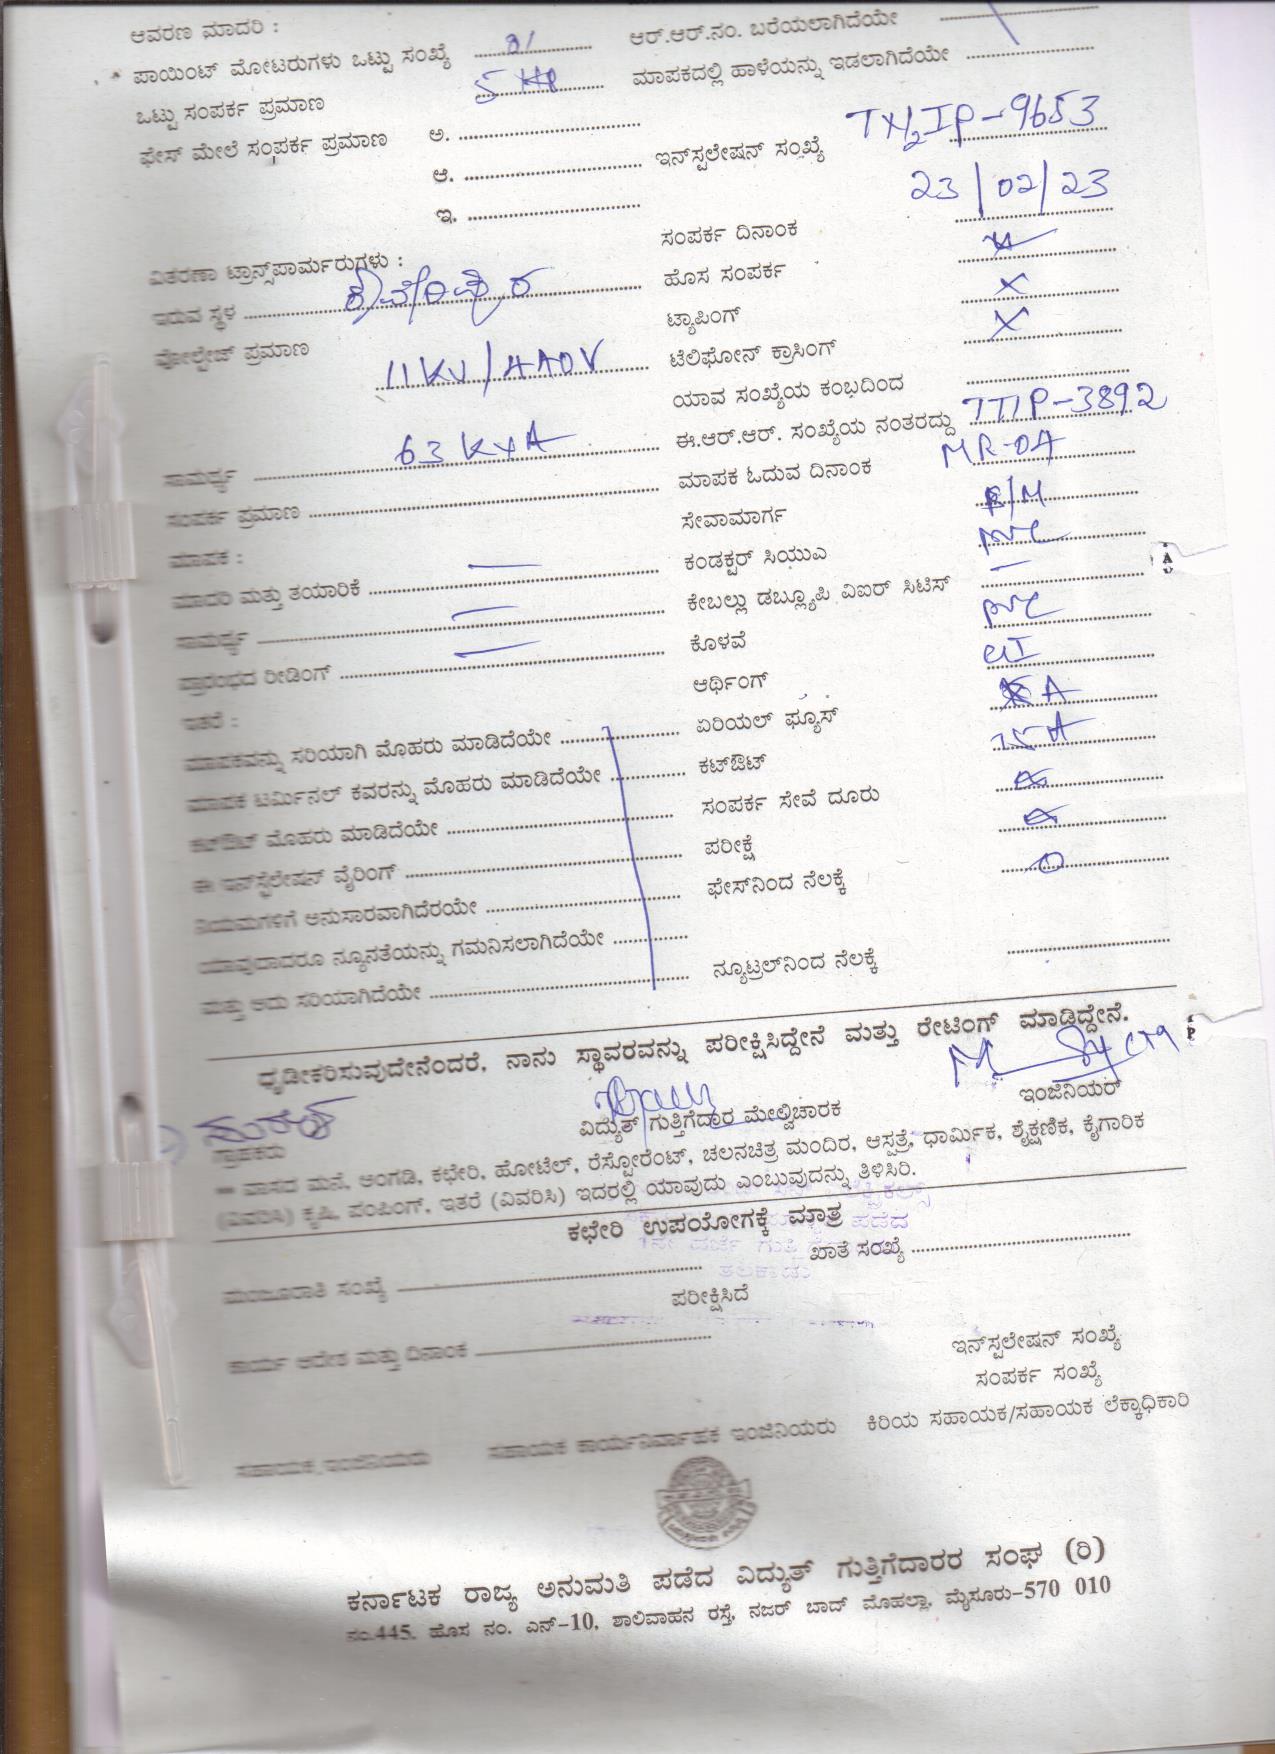 ಆವರಣ ಮಾದರಿ :
ಪಾಯಿಂಟ್ ಮೋಟರುಗಳು ಒಟ್ಟು ಸಂಖ್ಯೆ ........ ಆರ್.ಆರ್.ನಂ. ಬರೆಯಲಾಗಿದೆಯೇ ........
ಒಟ್ಟು ಸಂಪರ್ಕ ಪ್ರಮಾಣ 5 HP ಮಾಪಕದಲ್ಲಿ ಹಾಳೆಯನ್ನು ಇಡಲಾಗಿದೆಯೇ ........
ಫೇಸ್ ಮೇಲೆ ಸಂಪರ್ಕ ಪ್ರಮಾಣ ಅ. ........
ಆ. ........ ಇನ್‌ಸ್ಪಲೇಷನ್ ಸಂಖ್ಯೆ IP-9653
ಇ. ........
ಸಂಪರ್ಕ ದಿನಾಂಕ 23/02/23
ವಿತರಣಾ ಟ್ರಾನ್ಸ್‌ಪಾರ್ಮರುಗಳು :
ಹೊಸ ಸಂಪರ್ಕ
ಇರುವ ಸ್ಥಳ ........
ಟ್ಯಾಪಿಂಗ್ X
ವೋಲ್ಟೇಜ್ ಪ್ರಮಾಣ 11KV/440V
ಟೆಲಿಫೋನ್ ಕ್ರಾಸಿಂಗ್ X
ಯಾವ ಸಂಖ್ಯೆಯ ಕಂಭದಿಂದ ........
ಸಾಮರ್ಥ್ಯ 63 KVA ಈ.ಆರ್.ಆರ್. ಸಂಖ್ಯೆಯ ನಂತರದ್ದು TTIP-3892
ಸಂಪರ್ಕ ಪ್ರಮಾಣ ........ ಮಾಪಕ ಓದುವ ದಿನಾಂಕ MR-04
ಮಾಪಕ : ಸೇವಾಮಾರ್ಗ
ಮಾದರಿ ಮತ್ತು ತಯಾರಿಕೆ — ಕಂಡಕ್ಟರ್ ಸಿಯುಎ
ಸಾಮರ್ಥ್ಯ — ಕೇಬಲ್ಲು ಡಬ್ಲ್ಯೂಪಿ ವಿಐರ್ ಸಿಟಿಸ್ —
ಪ್ರಾರಂಭದ ರೀಡಿಂಗ್ — ಕೊಳವೆ
ಇತರೆ : ಆರ್ಥಿಂಗ್
ಮಾಪಕವನ್ನು ಸರಿಯಾಗಿ ಮೊಹರು ಮಾಡಿದೆಯೇ ........ ಏರಿಯಲ್ ಫ್ಯೂಸ್
ಮಾಪಕ ಟರ್ಮಿನಲ್ ಕವರನ್ನು ಮೊಹರು ಮಾಡಿದೆಯೇ ........ ಕಟ್‌ಔಟ್
ಕಟ್‌ಔಟ್ ಮೊಹರು ಮಾಡಿದೆಯೇ ........ ಸಂಪರ್ಕ ಸೇವೆ ದೂರು
ಈ ಇನ್‌ಸ್ಪೆಲೇಷನ್ ವೈರಿಂಗ್ ........ ಪರೀಕ್ಷೆ
ನಿಯಮಗಳಿಗೆ ಅನುಸಾರವಾಗಿದೆರಯೇ ........ ಫೇಸ್‌ನಿಂದ ನೆಲಕ್ಕೆ 0
ಯಾವುದಾದರೂ ನ್ಯೂನತೆಯನ್ನು ಗಮನಿಸಲಾಗಿದೆಯೇ ........
ಮತ್ತು ಅದು ಸರಿಯಾಗಿದೆಯೇ ........ ನ್ಯೂಟ್ರಲ್‌ನಿಂದ ನೆಲಕ್ಕೆ ........
ಧೃಡೀಕರಿಸುವುದೇನೆಂದರೆ, ನಾನು ಸ್ಥಾವರವನ್ನು ಪರೀಕ್ಷಿಸಿದ್ದೇನೆ ಮತ್ತು ರೇಟಿಂಗ್ ಮಾಡಿದ್ದೇನೆ.
ಗ್ರಾಹಕರು ವಿದ್ಯುತ್ ಗುತ್ತಿಗೆದಾರ ಮೇಲ್ವಿಚಾರಕ ಇಂಜಿನಿಯರ್
— ವಾಸದ ಮನೆ, ಅಂಗಡಿ, ಕಛೇರಿ, ಹೋಟೆಲ್, ರೆಸ್ಟೋರೆಂಟ್, ಚಲನಚಿತ್ರ ಮಂದಿರ, ಆಸ್ಪತ್ರೆ, ಧಾರ್ಮಿಕ, ಶೈಕ್ಷಣಿಕ, ಕೈಗಾರಿಕ
(ವಿವರಿಸಿ) ಕೃಷಿ, ಪಂಪಿಂಗ್, ಇತರೆ (ವಿವರಿಸಿ) ಇದರಲ್ಲಿ ಯಾವುದು ಎಂಬುವುದನ್ನು ತಿಳಿಸಿರಿ.
ಕಛೇರಿ ಉಪಯೋಗಕ್ಕೆ ಮಾತ್ರ
ಮಂಜೂರಾತಿ ಸಂಖ್ಯೆ ........ ಖಾತೆ ಸಂಖ್ಯೆ ........
ತಲಕಾಡು
ಪರೀಕ್ಷಿಸಿದೆ
ಕಾರ್ಯ ಆದೇಶ ಮತ್ತು ದಿನಾಂಕ ........ ಇನ್‌ಸ್ಪಲೇಷನ್ ಸಂಖ್ಯೆ
ಸಂಪರ್ಕ ಸಂಖ್ಯೆ
ಸಹಾಯಕ ಇಂಜಿನಿಯರು ಸಹಾಯಕ ಕಾರ್ಯನಿರ್ವಾಹಕ ಇಂಜಿನಿಯರು ಕಿರಿಯ ಸಹಾಯಕ/ಸಹಾಯಕ ಲೆಕ್ಕಾಧಿಕಾರಿ
ಕರ್ನಾಟಕ ರಾಜ್ಯ ಅನುಮತಿ ಪಡೆದ ವಿದ್ಯುತ್ ಗುತ್ತಿಗೆದಾರರ ಸಂಘ (ರಿ)
ನಂ.445, ಹೊಸ ನಂ. ಎನ್-10, ಶಾಲಿವಾಹನ ರಸ್ತೆ, ನಜರ್ ಬಾದ್ ಮೊಹಲ್ಲಾ, ಮೈಸೂರು-570 010